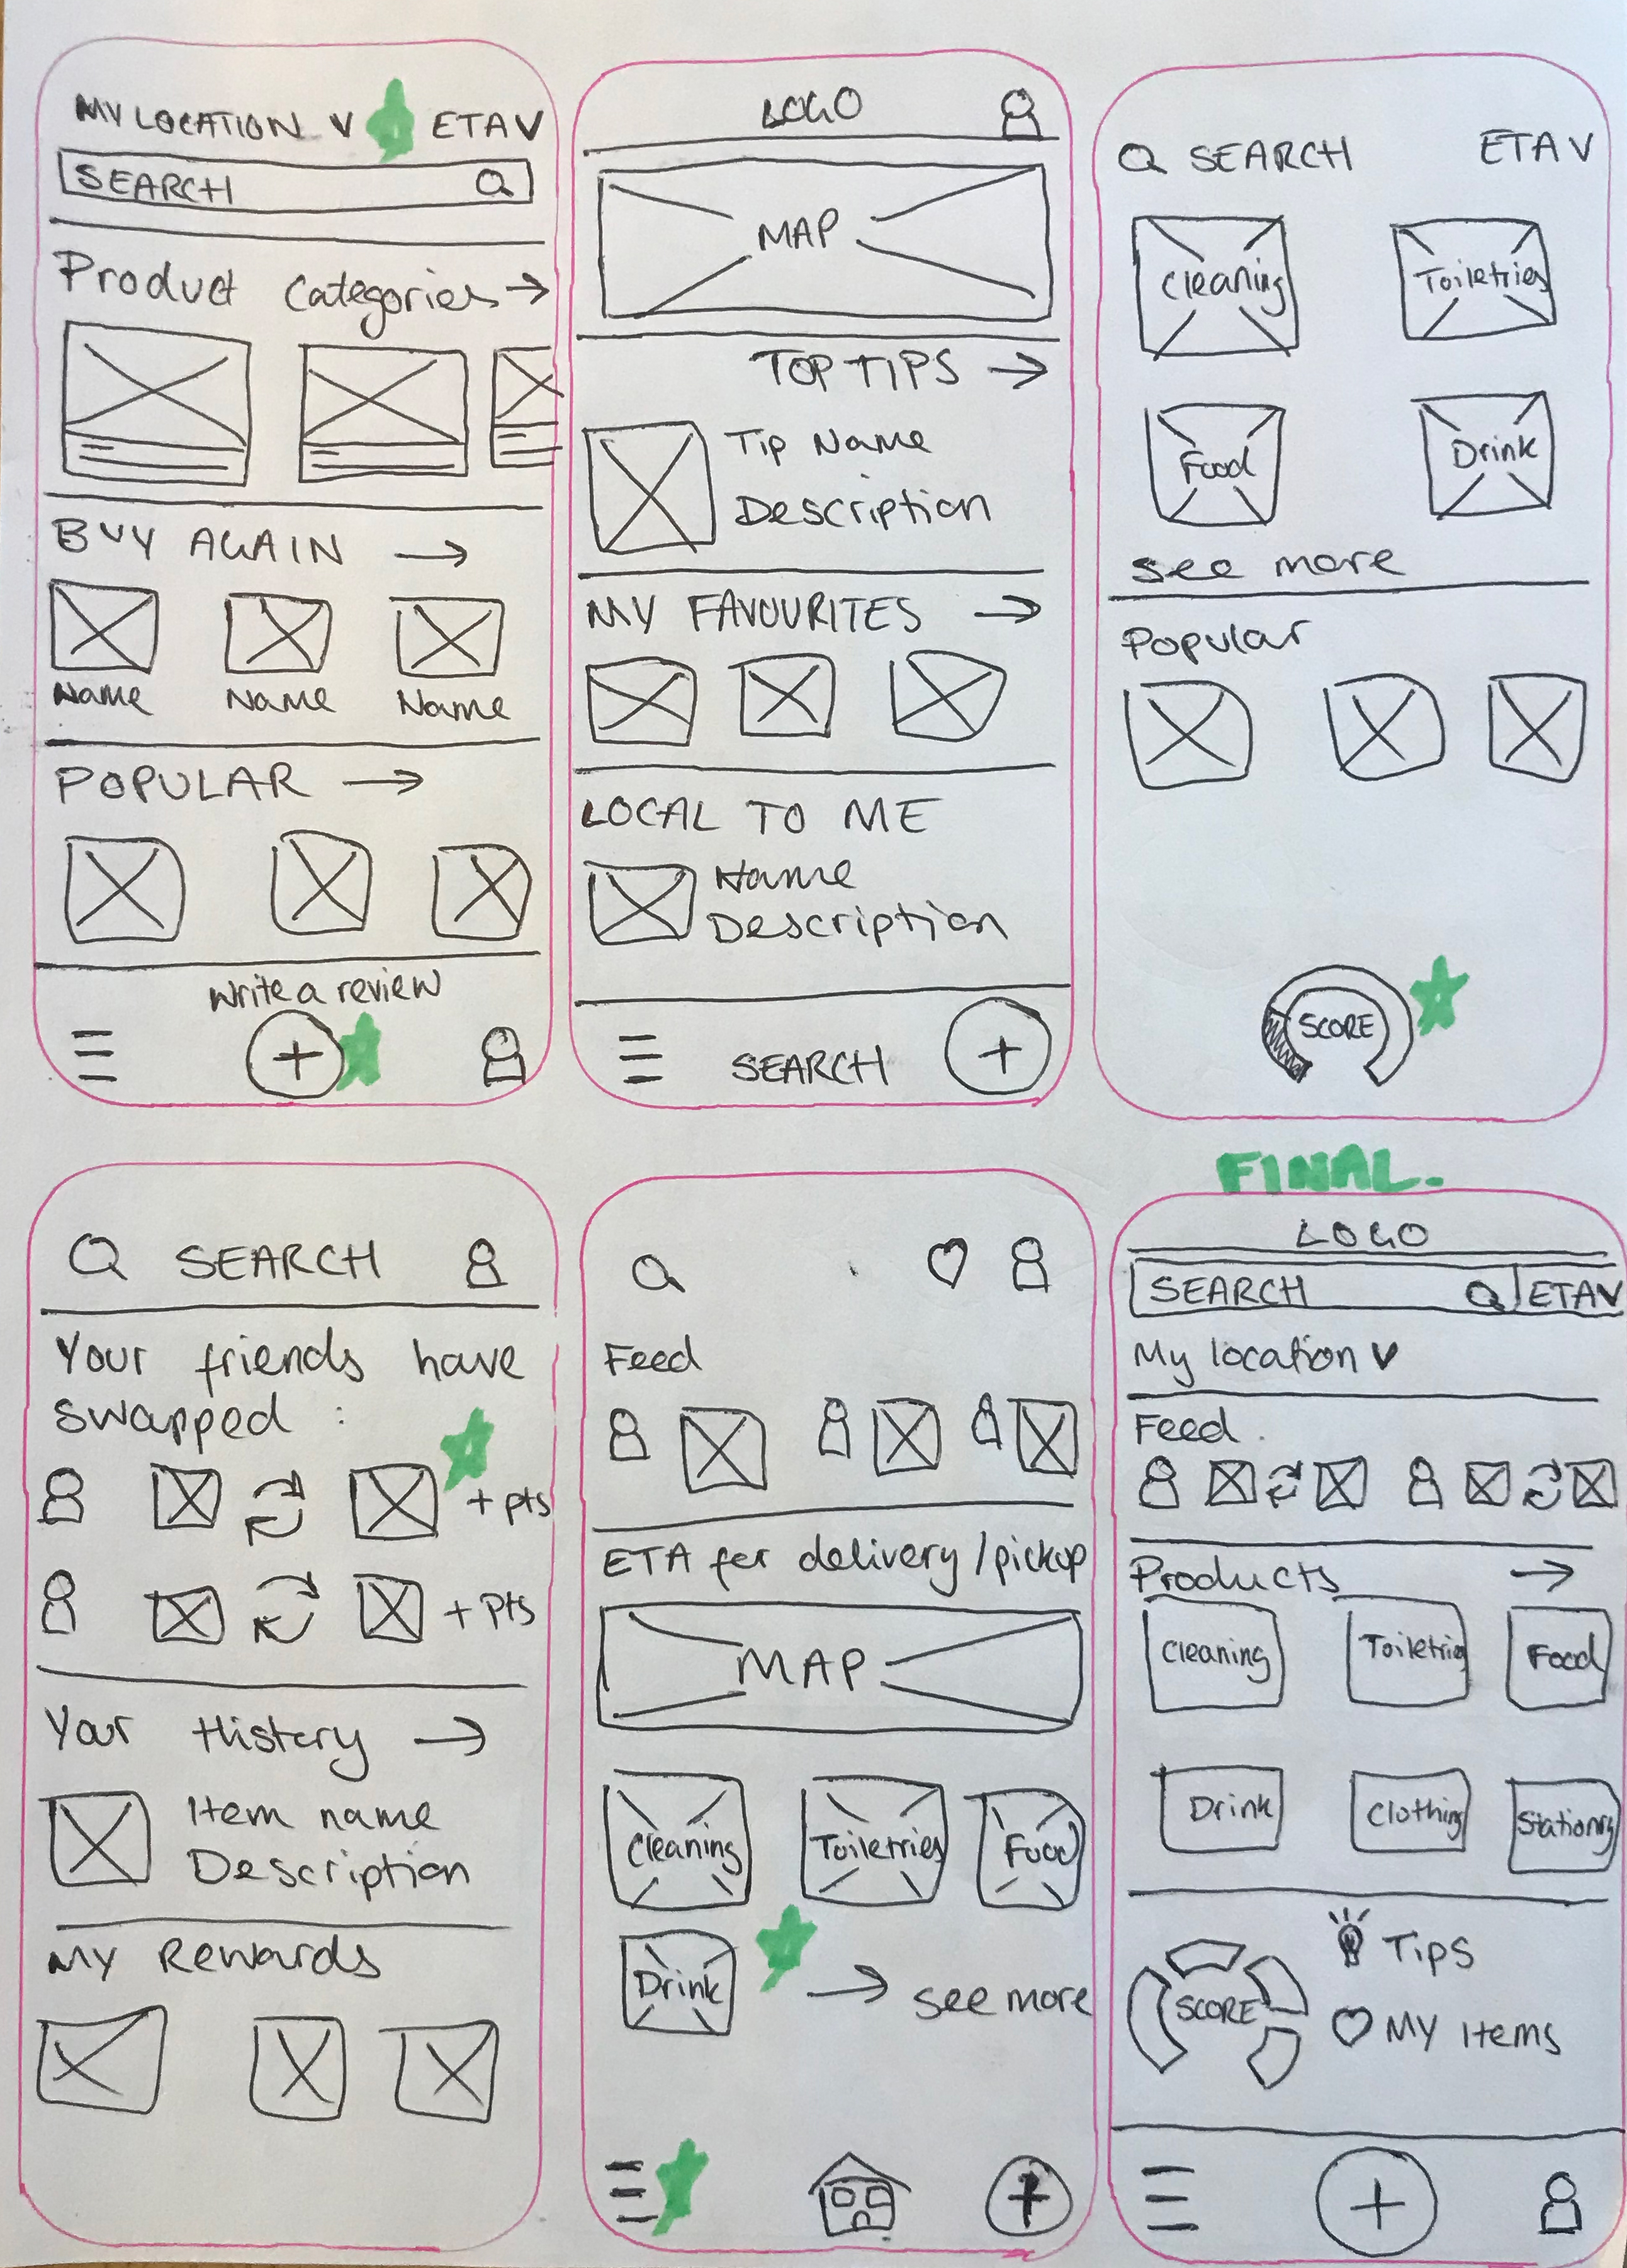 MY LOCATION V ETA V
SEARCH
Product Categories →
BUY AGAIN →
Name Name Name
POPULAR →
Write a review
+
LOGO
MAP
TOP TIPS →
Tip Name
Description
MY FAVOURITES →
LOCAL TO ME
Name
Description
SEARCH +
SEARCH ETA V
Cleaning Toiletries
Food Drink
see more
Popular
SCORE
SEARCH
Your friends have
swapped :
+ pts
+ pts
Your History →
Item name
Description
My Rewards
Feed
ETA for delivery/pickup
MAP
Cleaning Toiletries Food
Drink → see more
+
FINAL.
LOGO
SEARCH ETA V
My location V
Feed.
Products →
Cleaning Toiletries Food
Drink Clothing Stationry
SCORE
Tips
My Items
+